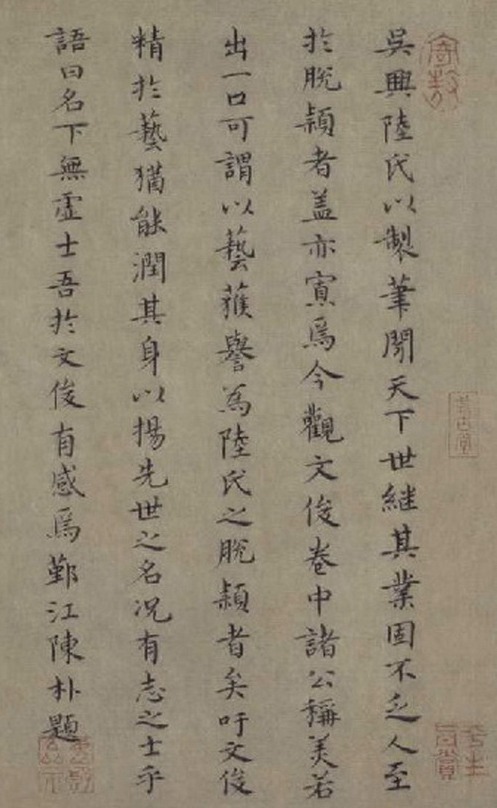 吳興陸氏以製筆聞天下世繼其業固不乏人至
於脫穎者盖亦寡焉今觀文俊卷中諸公稱美若
出一口可謂以藝獲譽為陸氏之脫穎者矣吁文俊
精於藝猶能潤其身以揚先世之名况有志之士乎
語曰名下無虛士吾於文俊有感焉鄞江陳朴題